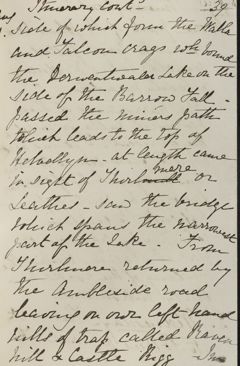 Itinerary cont-
39
side of which form the Walla
and Falcon crags wh. bound
the Derwentwater Lake on the
side of the Barrow Fall -
passed the miners path
which leads to the top of
Helvellyn - at length came
in sight of Thirlmere or
Leathes - saw the bridge
which spans the narrowest
part of the Lake - From
Thirlmere returned by
the Ambleside road
leaving on our left hand
hills of trap called Raven
hill & Castle Rigg